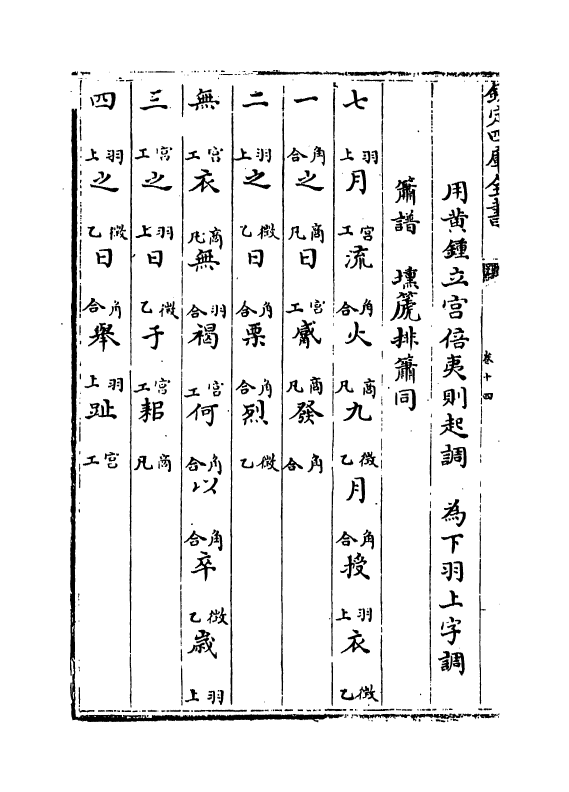 欽定四庫全書 卷十四
用黄鍾立宫倍夷則起調 為下羽上字調
簫譜 壎篪排簫同
七羽上月宫工流角合火商凡九徵乙月角合授羽上衣徵乙
一角合之商凡日宫工觱商凡發角合
二羽上之徵乙日角合栗角合烈徵乙
無宫工衣商凡無羽合褐宫工何角合以角合卒徵乙歲羽上
三宫工之羽上日徵乙于宫工耜商凡
四羽上之徵乙日角合舉羽上趾宫工